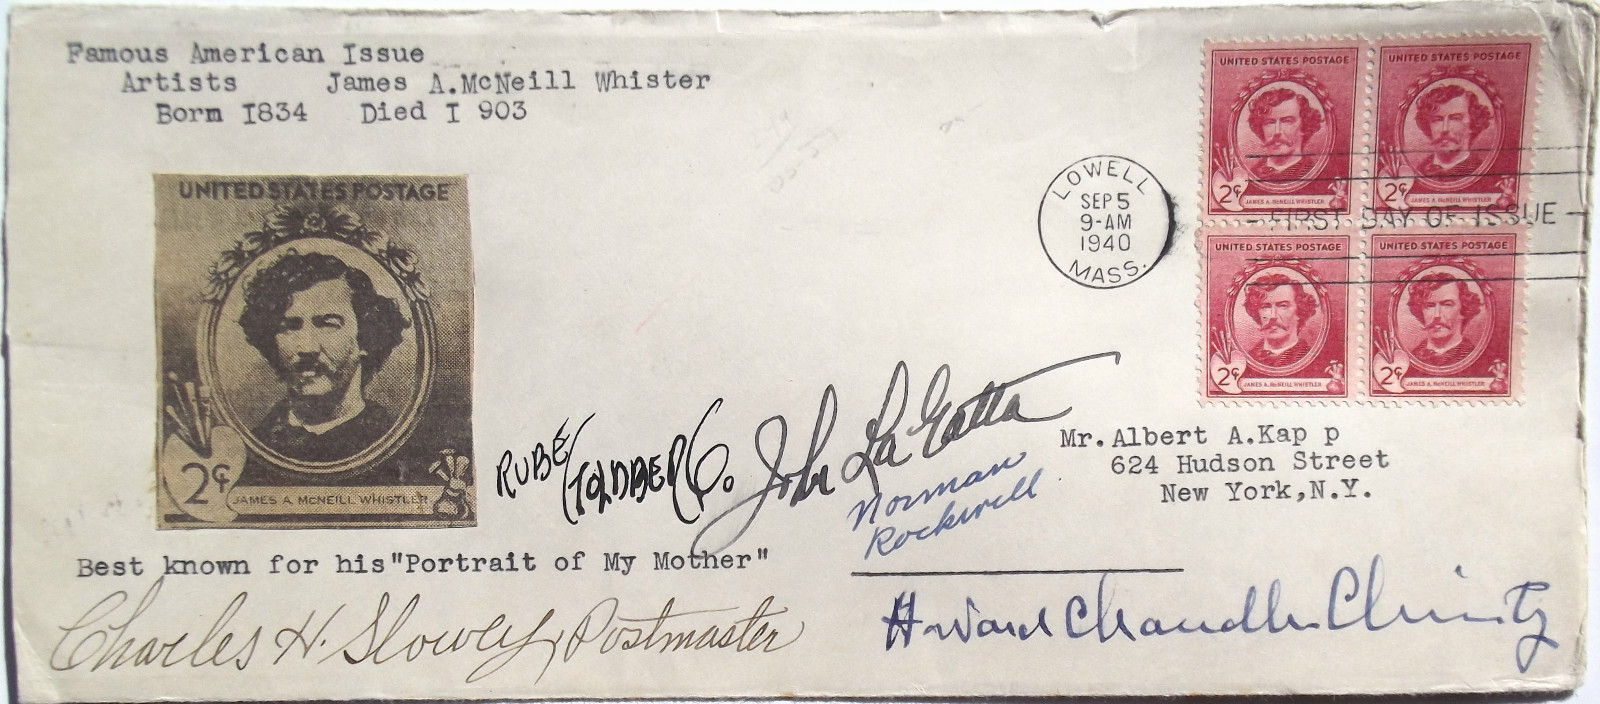 Famous American Issue
Artists James A.McNeill Whister
Borm I834 Died I 903
UNITED STATES POSTAGE
2¢
JAMES A MCNEILL WHISTLER
Best known for his "Portrait of My Mother"
Charles H. Slowey, Postmaster
RUBE GOLDBERG.
John La Gatta
Norman
Rockwell
Howard Chandler Christy
LOWELL
SEP 5
9-AM
1940
MASS.
FIRST DAY OF ISSUE
UNITED STATES POSTAGE
2¢
JAMES A. MCNEILL WHISTLER
UNITED STATES POSTAGE
2¢
JAMES A. MCNEILL WHISTLER
UNITED STATES POSTAGE
2¢
JAMES A. MCNEILL WHISTLER
UNITED STATES POSTAGE
2¢
JAMES A. MCNEILL WHISTLER
Mr. Albert A.Kap p
624 Hudson Street
New York,N.Y.